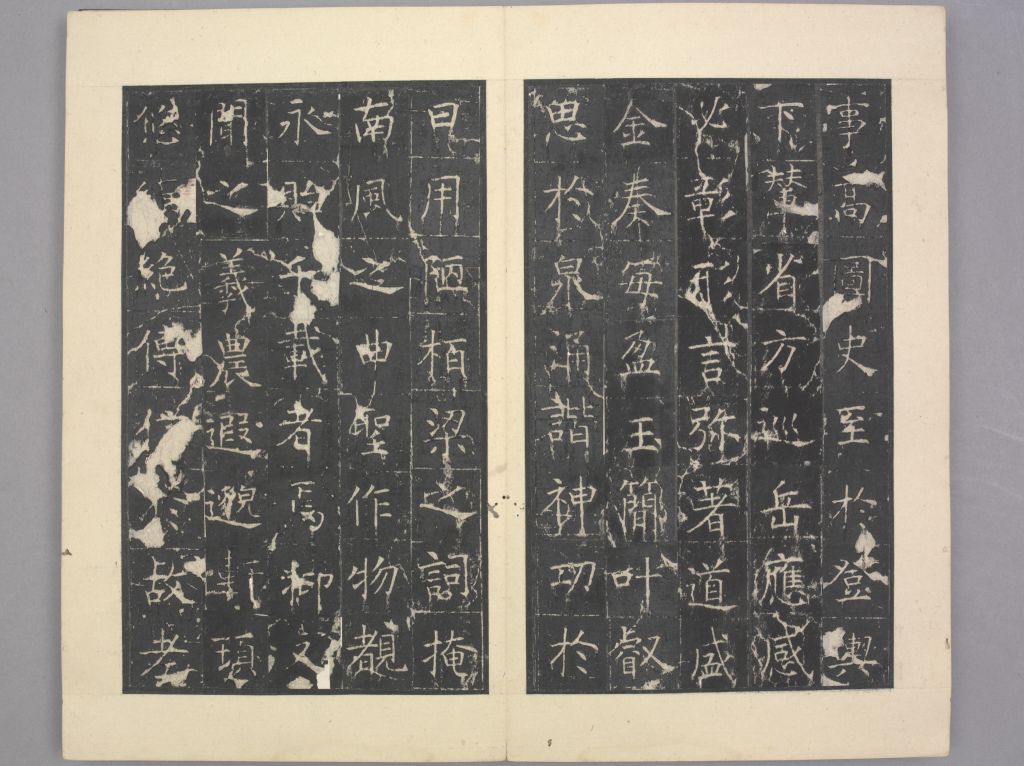 事高圖史至於登輿
下輦省方巡岳應感
必彰形言弥著道盛
金秦每盈玉簡叶叡
思於泉涌諧神功於
日用陋栢梁之詞掩
南風之曲聖作物覩
永貽千載者焉御文
聞之羲農遐邈軒頊
悠緬絶傳信於故老